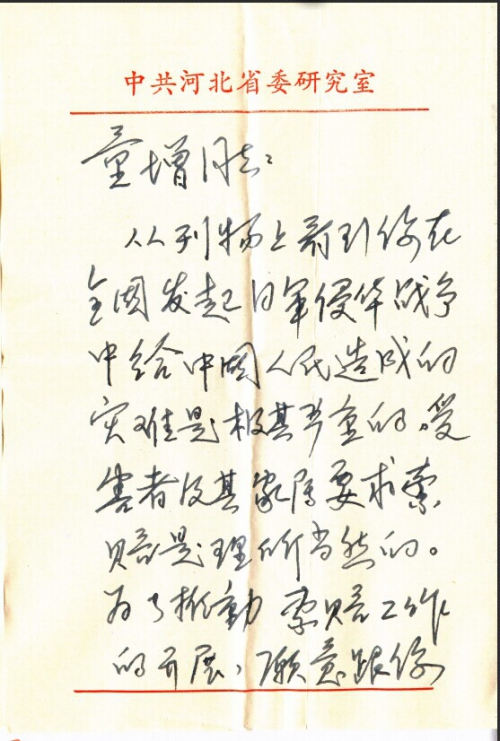 中共河北省委研究室
童增同志：
从刊物上看到你在
全国发起日军侵华战争
中给中国人民造成的
灾难是极其严重的。受
害者及其家属要求索
赔是理所当然的。
为了推动索赔工作
的开展，愿意跟你